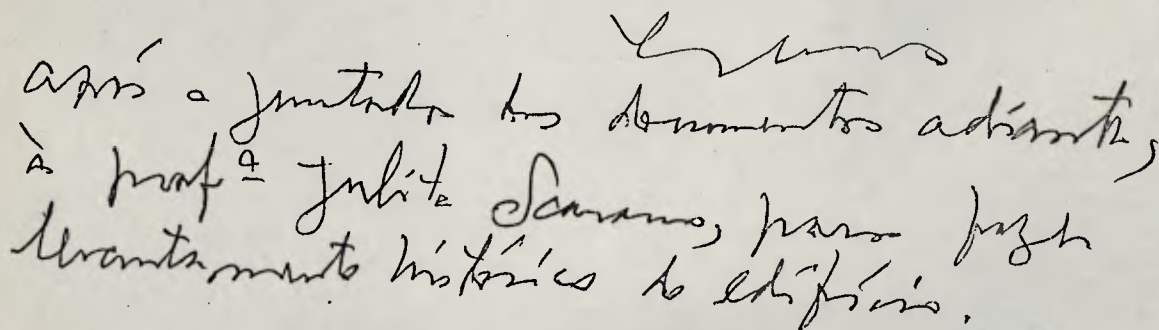 após a juntada dos documentos adiante,
à profª Julita Scarano, para fazer
levantamento histórico do edifício.